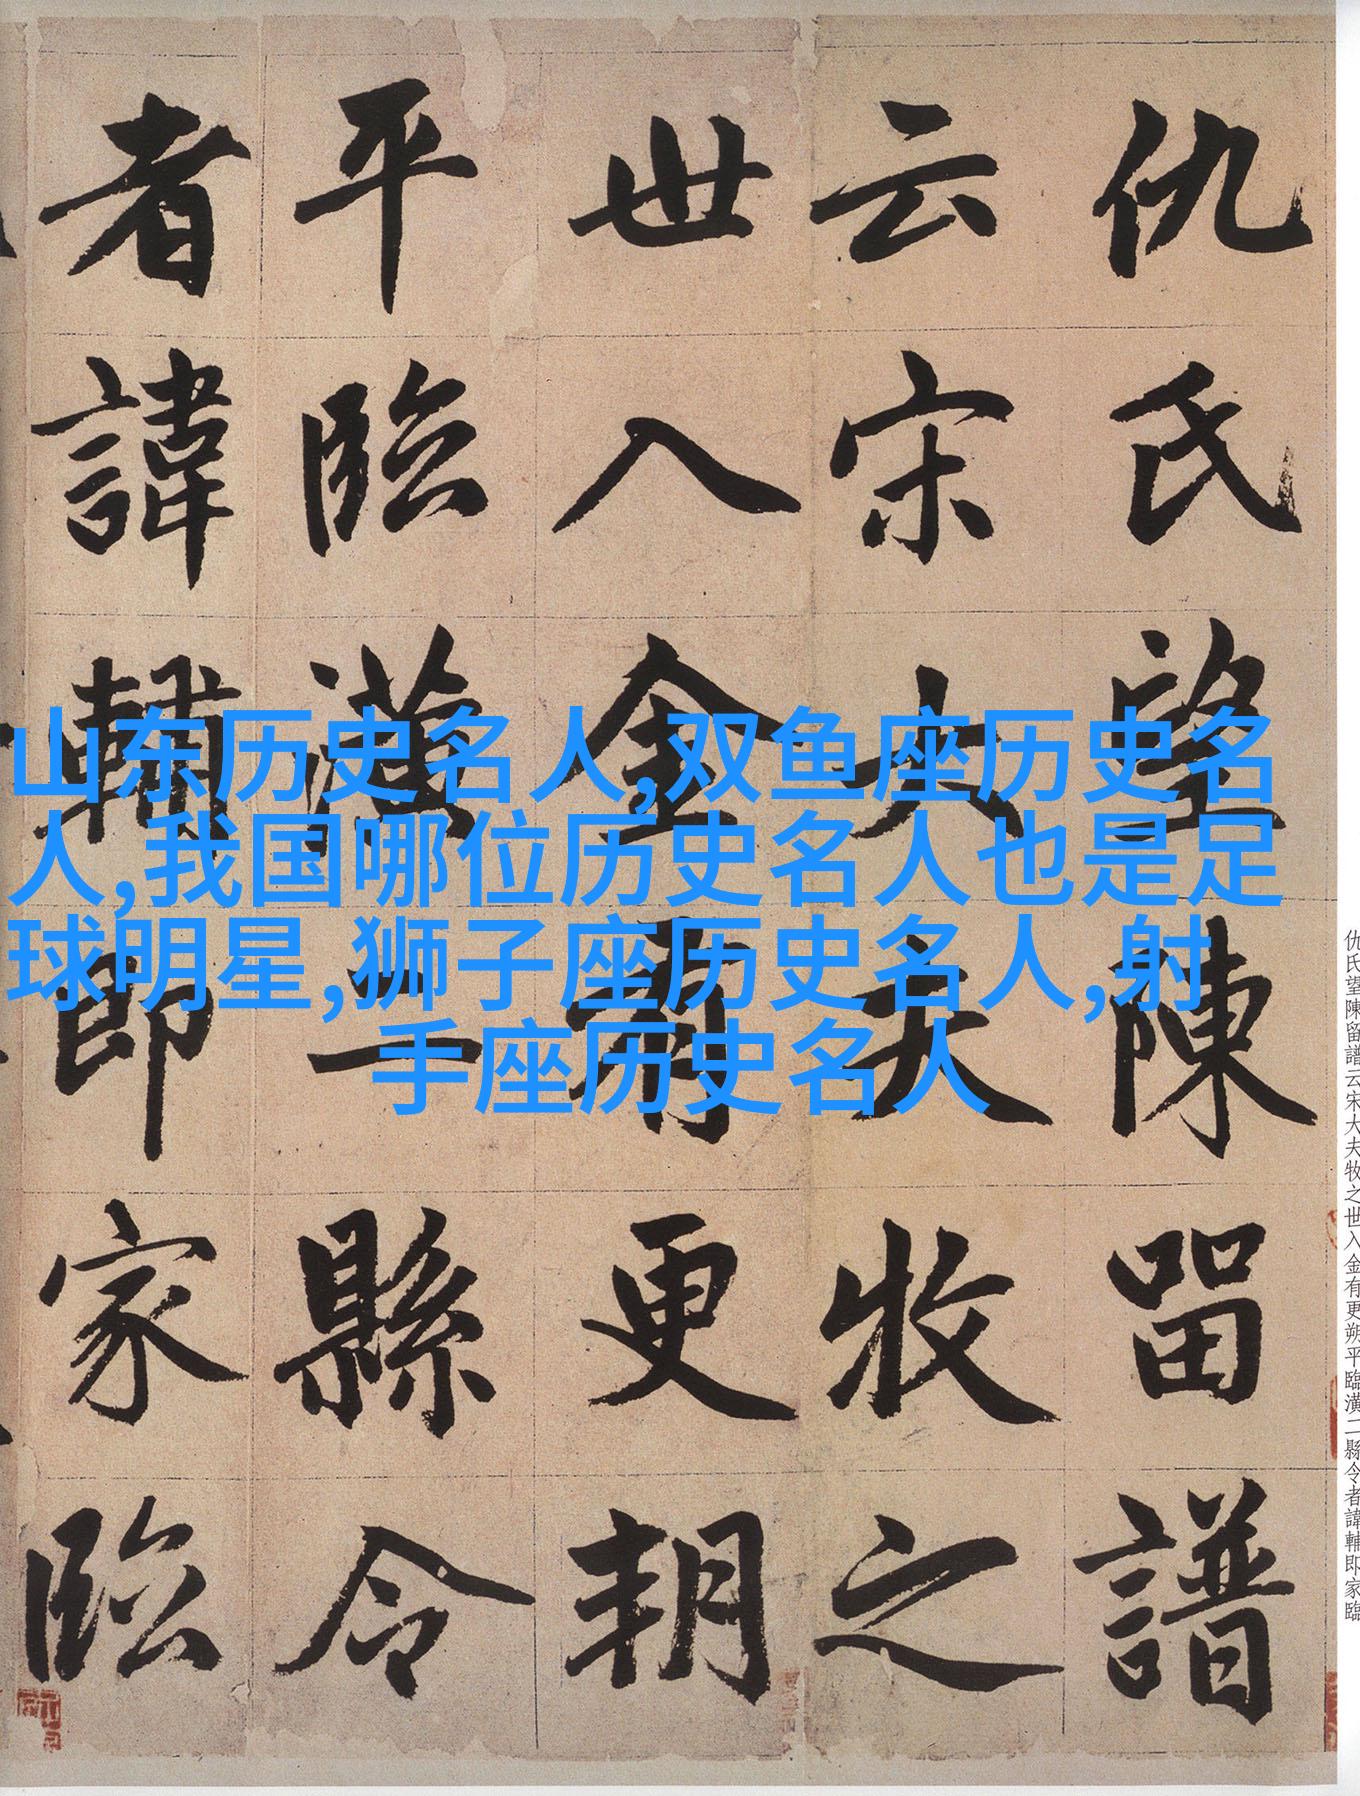 仇氏望陳留譜
云宋大夫牧之
世入金有更朔
平臨潢二縣令
者諱輔即家臨
山东历史名人,双鱼座历史名
人,我国哪位历史名人也是足
球明星,狮子座历史名人,射
手座历史名人
仇氏望陳留譜云宋大夫牧之世入金有更朔平臨潢二縣令者諱輔即家臨